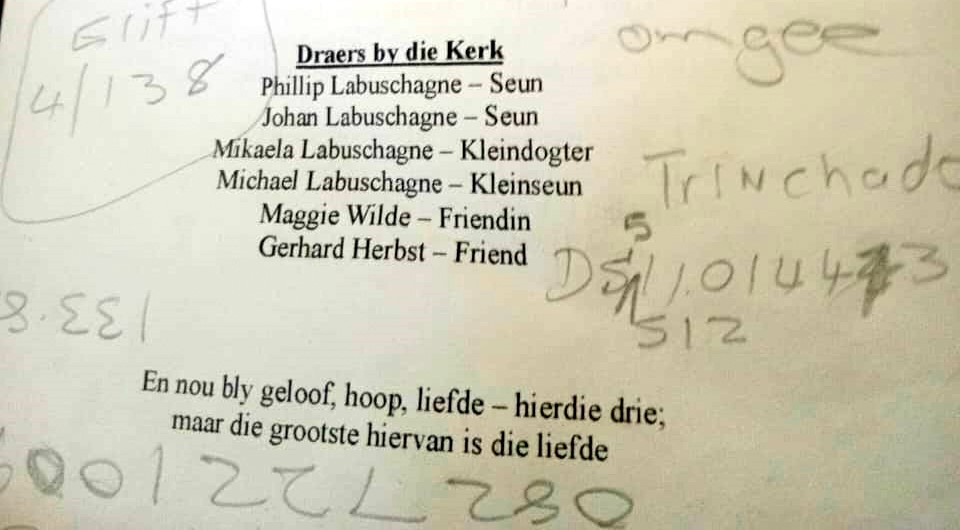 4/138
Draers by die Kerk
omgee
Phillip Labuschagne – Seun
Johan Labuschagne – Seun
Mikaela Labuschagne – Kleindogter
Michael Labuschagne – Kleinseun
TrINchado
Maggie Wilde – Friendin
Gerhard Herbst – Friend
5
512
En nou bly geloof, hoop, liefde – hierdie drie;
maar die grootste hiervan is die liefde